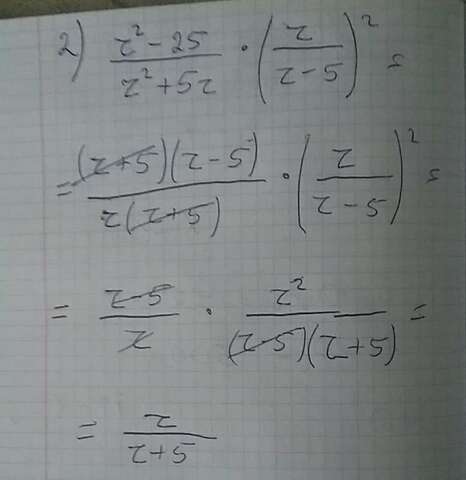 2) (z² - 25)/(z² + 5z) · (z/(z - 5))² =
= ((z + 5)(z - 5))/(z(z + 5)) · (z/(z - 5))² =
= (z - 5)/z · z²/((z - 5)(z + 5)) =
= z/(z + 5)